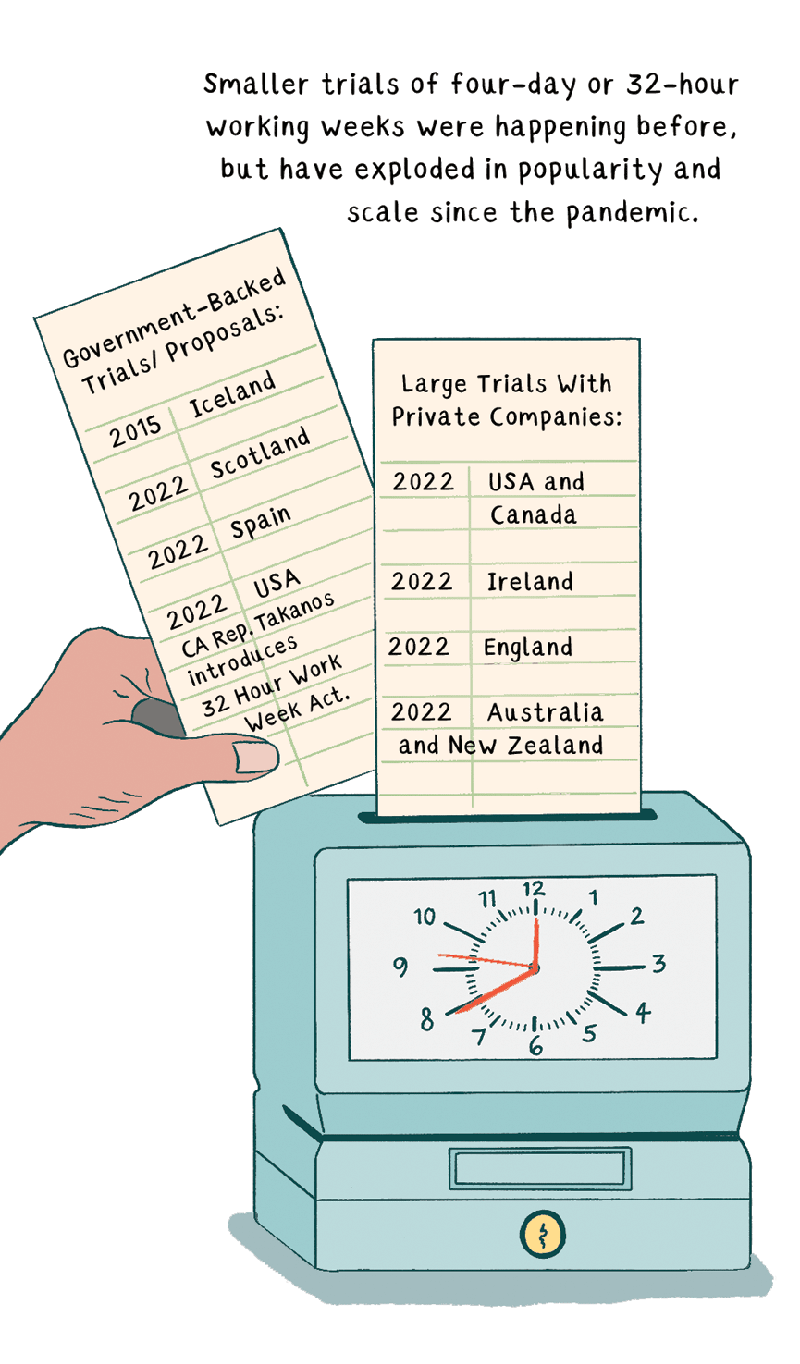 Smaller trials of four-day or 32-hour
working weeks were happening before,
but have exploded in popularity and
scale since the pandemic.
Government-Backed
Trials/ Proposals:
2015 Iceland
2022 Scotland
2022 Spain
2022 USA
CA Rep. Takanos
introduces
32 Hour Work
Week Act.
Large Trials With
Private Companies:
2022 USA and
Canada
2022 Ireland
2022 England
2022 Australia
and New Zealand
12
11 1
10 2
9 3
8 4
7 5
6